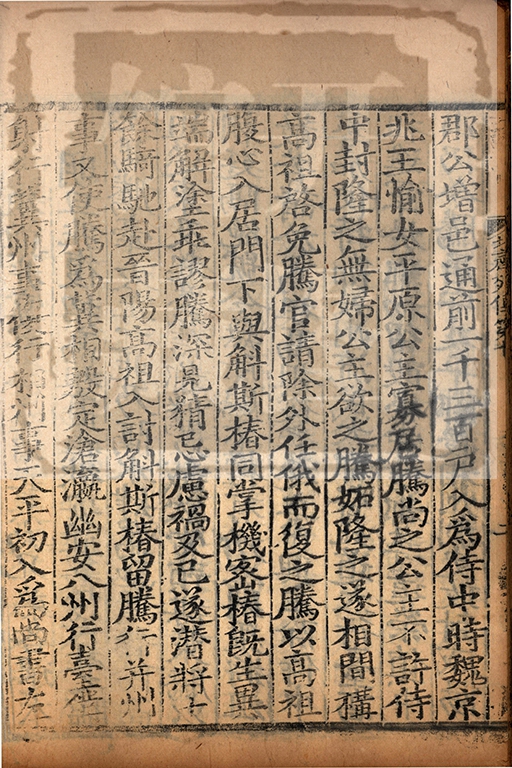 郡公增邑通前一千三百戶入爲侍中時魏京
兆王愉女平原公主寡居騰尚之公主不許侍
中封隆之無婦公主欲之騰妬隆之遂相間構
高祖啓免騰官請除外任俄而復之騰以高祖
腹心入居門下與斛斯椿同掌機密椿旣生異
端觧塗乖謬騰深見猜忌慮禍及已遂潜將十
餘騎馳赴晉陽高祖入討斛斯椿留騰行并州
事又使騰爲兾相殷定滄瀛幽安八州行臺
行兾州事 行相州事天平初入爲尚書左